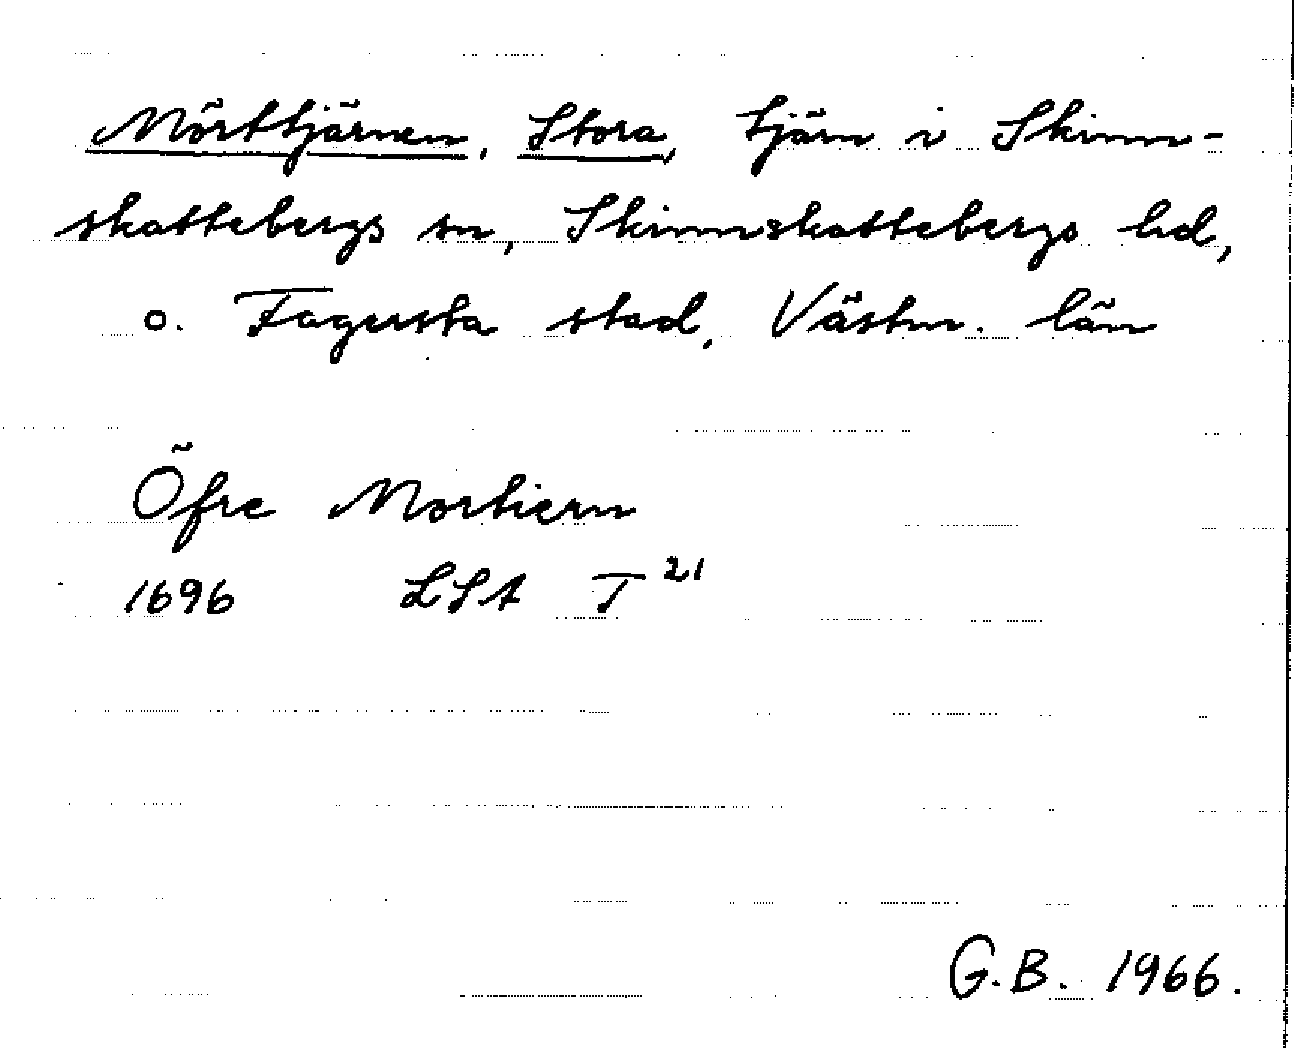 Mörttjärnen, Stora, tjärn i Skinn-
skattebergs sn, Skinnskattebergs hd,
o. Fagersta stad, Västm. län
Öfre Mortiern
1696 LSA T 21
G.B. 1966.